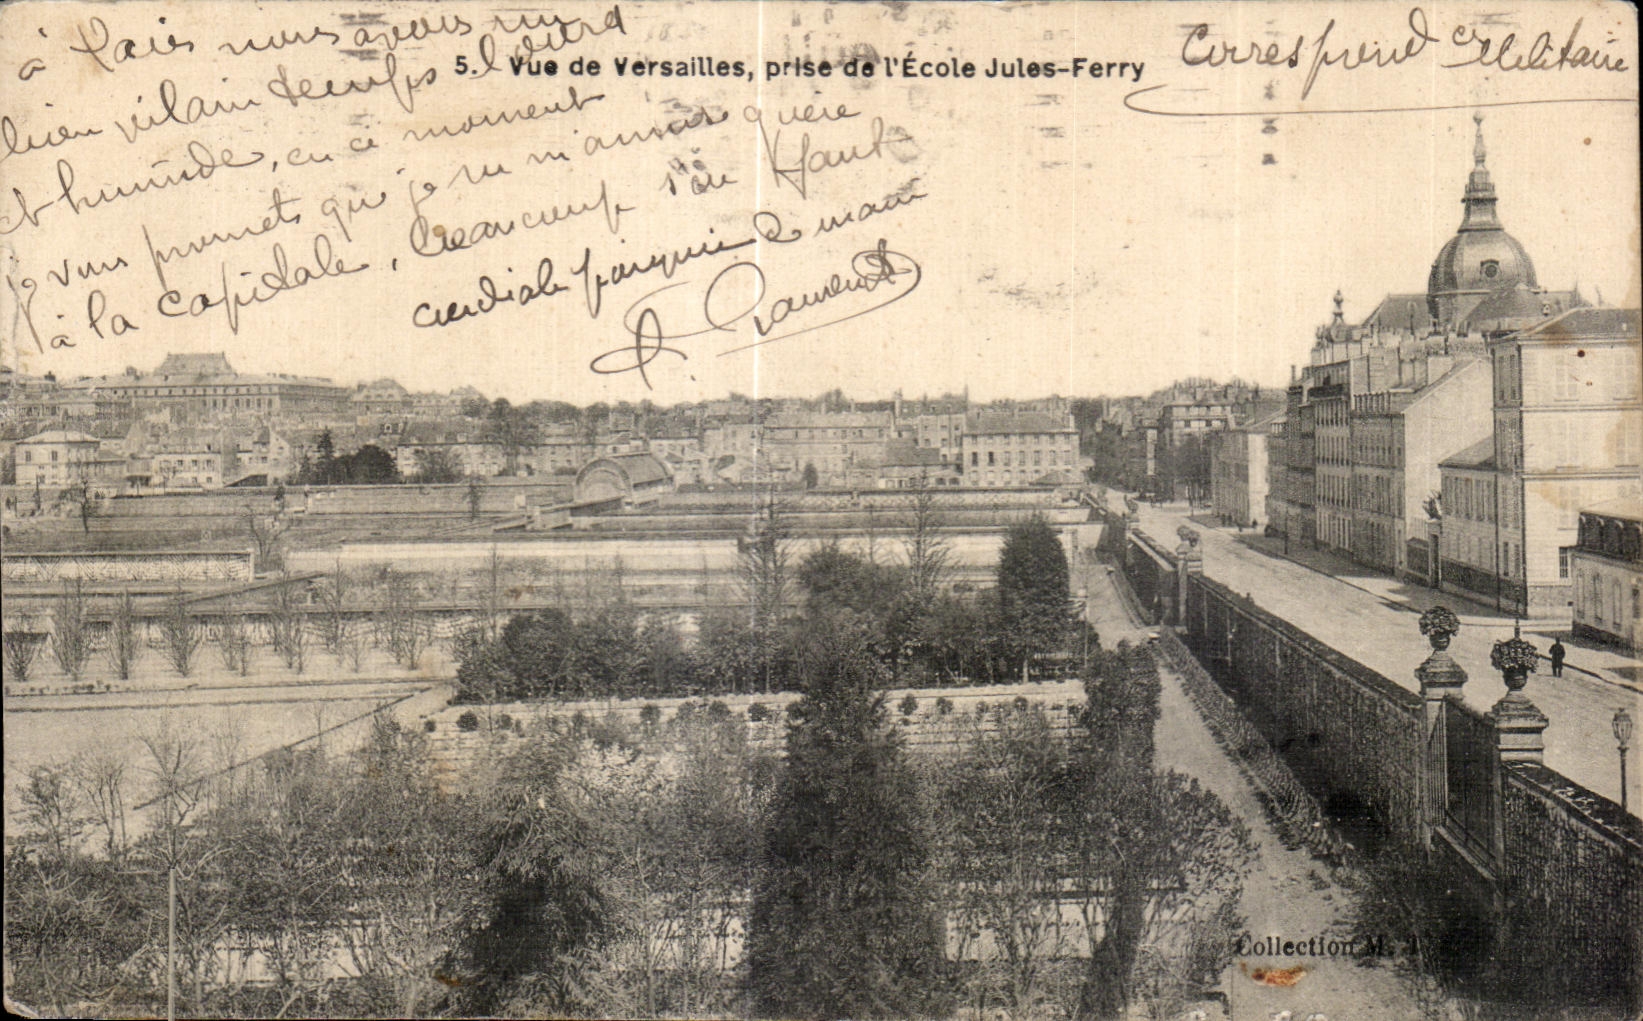 à Paris nous avons un
bien vilain temps lourd
et humide, en ce moment
je vous promets que je ne m'amuse guère
à la capitale, beaucoup s'en faut
cordiale poignée de main
Laurent
Correspond ce Militaire
5. Vue de Versailles, prise de l'École Jules-Ferry
Collection M. T